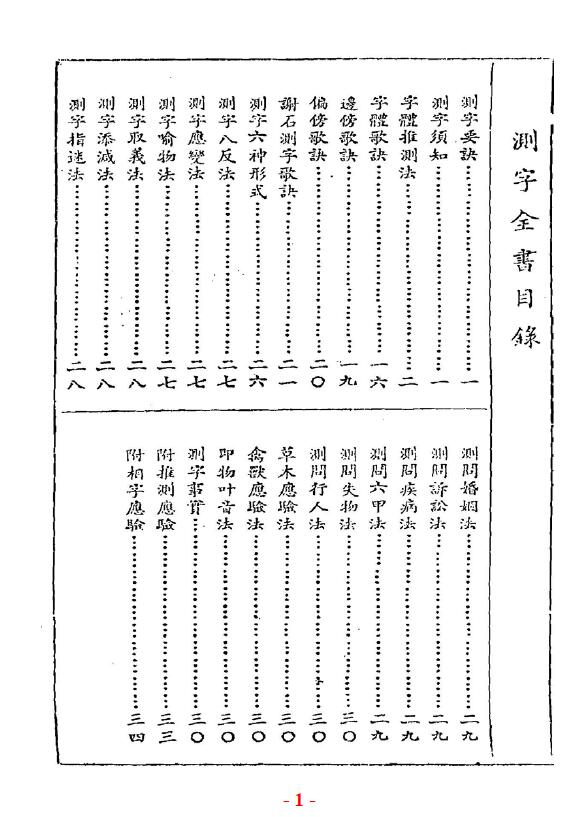 測字全書目錄
測字要訣……一
測字須知……一
字體推測法……二
字體歌訣……一六
邊傍歌訣……一九
偏傍歌訣……二〇
謝石測字歌訣……二一
測字六神形式……二六
測字八反法……二七
測字應變法……二七
測字喻物法……二七
測字取義法……二八
測字添減法……二八
測字指迷法……二八
測問婚姻法……二九
測問訴訟法……二九
測問疾病法……二九
測問六甲法……二九
測問失物法……三〇
測問行人法……三〇
草木應驗法……三〇
禽獸應驗法……三〇
即物叶音法……三〇
測字事實……三〇
附推測應驗……三三
附相字應驗……三四
- 1 -